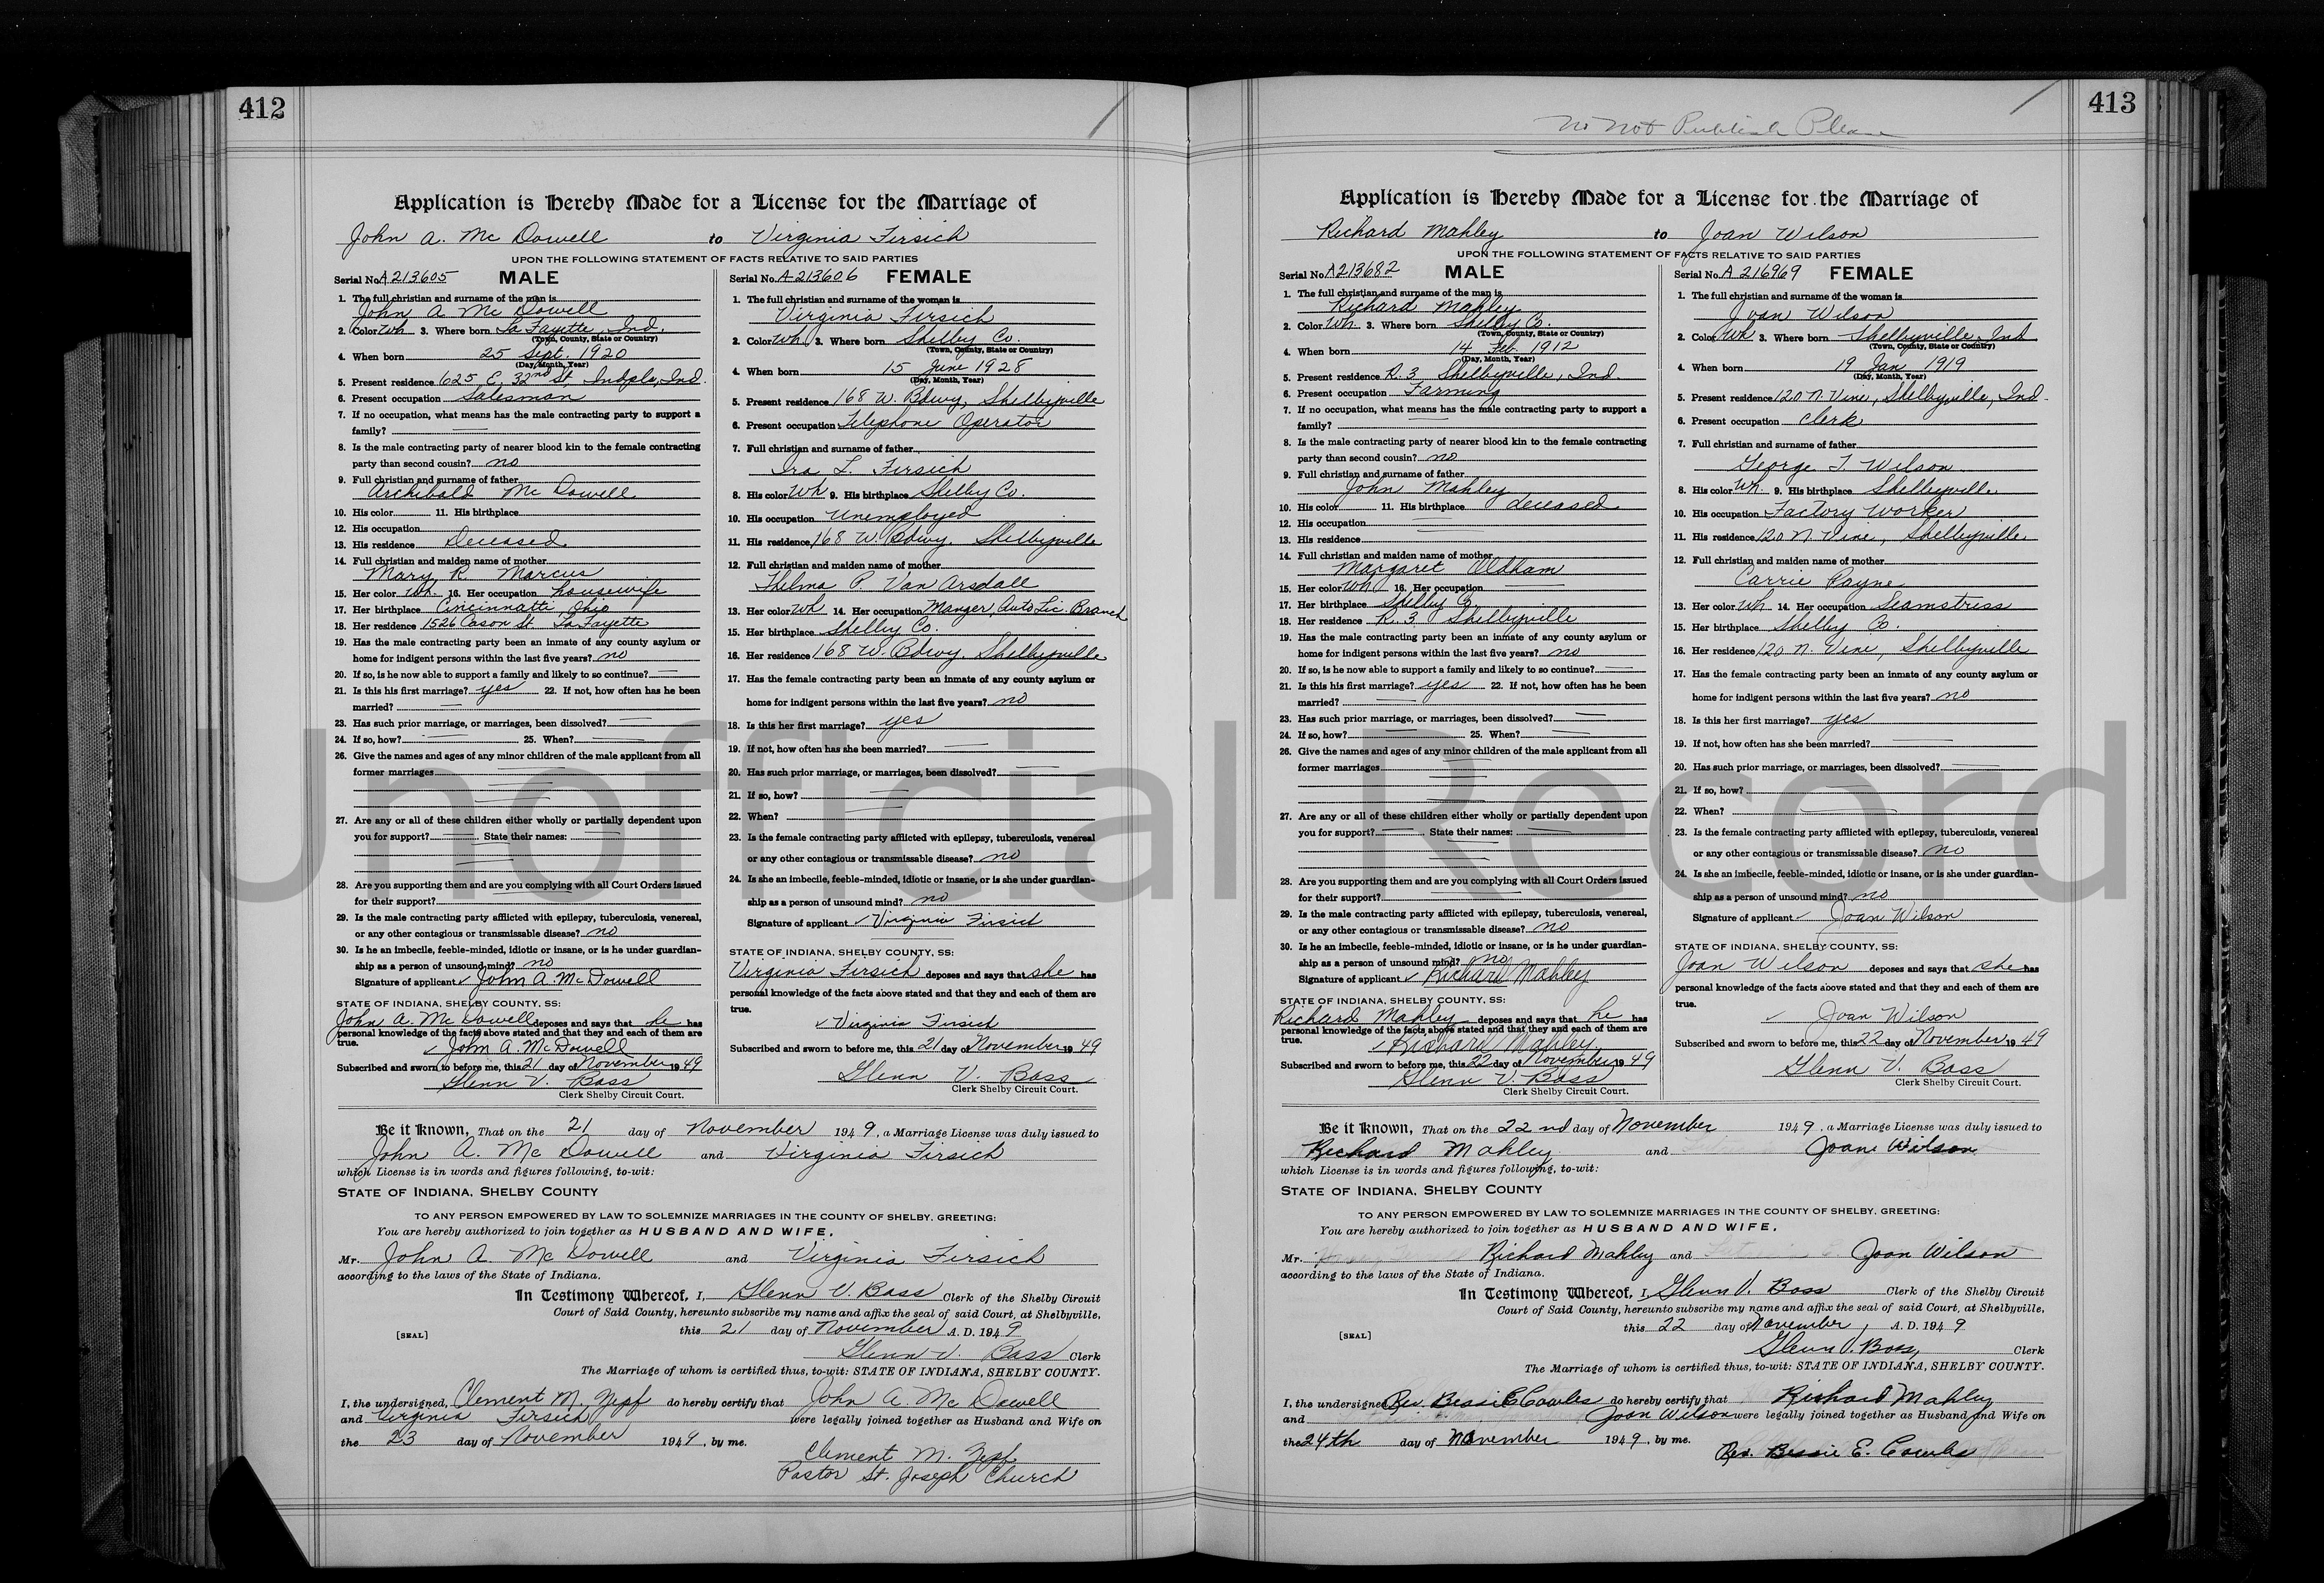 412
Application is Hereby Made for a License for the Marriage of
John A. Mc Dowell to Virginia Firsich
UPON THE FOLLOWING STATEMENT OF FACTS RELATIVE TO SAID PARTIES
Serial No. A213605 MALE
1. The full christian and surname of the man is
John A Mc Dowell
2. Color Wh 3. Where born La Fayette, Ind.
(Town, County, State or Country)
4. When born 25 Sept. 1920
(Day, Month, Year)
5. Present residence 625 E. 32nd St, Indpls, Ind.
6. Present occupation Salesman
7. If no occupation, what means has the male contracting party to support a
family?
8. Is the male contracting party of nearer blood kin to the female contracting
party than second cousin? no
9. Full christian and surname of father
Archibald Mc Dowell
10. His color 11. His birthplace
12. His occupation
13. His residence Deceased
14. Full christian and maiden name of mother
Mary R. Marcus
15. Her color Wh. 16. Her occupation housewife
17. Her birthplace Cincinnatti Ohio
18. Her residence 1526 Cason St. La Fayette
19. Has the male contracting party been an inmate of any county asylum or
home for indigent persons within the last five years? no
20. If so, is he now able to support a family and likely to so continue?
21. Is this his first marriage? yes 22. If not, how often has he been
married?
23. Has such prior marriage, or marriages, been dissolved?
24. If so, how? 25. When?
26. Give the names and ages of any minor children of the male applicant from all
former marriages
27. Are any or all of these children either wholly or partially dependent upon
you for support? State their names:
28. Are you supporting them and are you complying with all Court Orders issued
for their support?
29. Is the male contracting party afflicted with epilepsy, tuberculosis, venereal,
or any other contagious or transmissable disease? no
30. Is he an imbecile, feeble-minded, idiotic or insane, or is he under guardian-
ship as a person of unsound mind? no
Signature of applicant ✓ John A. McDowell
STATE OF INDIANA, SHELBY COUNTY, SS:
John A. Mc Dowell deposes and says that he has
personal knowledge of the facts above stated and that they and each of them are
true.
✓ John A. McDowell
Subscribed and sworn to before me, this 21 day of November 1949
Glenn V. Bass
Clerk Shelby Circuit Court.
Serial No. A-213606 FEMALE
1. The full christian and surname of the woman is
Virginia Firsich
2. Color Wh 3. Where born Shelby Co.
(Town, County, State or Country)
4. When born 15 June 1928
(Day, Month, Year)
5. Present residence 168 W. Bdwy, Shelbyville
6. Present occupation Telephone Operator
7. Full christian and surname of father
Ira L. Firsich
8. His color Wh 9. His birthplace Shelby Co.
10. His occupation Unemployed
11. His residence 168 W. Bdwy. Shelbyville
12. Full christian and maiden name of mother
Thelma P. Van Arsdall
13. Her color Wh 14. Her occupation Manger, Auto Lic. Branch
15. Her birthplace Shelby Co.
16. Her residence 168 W. Bdwy. Shelbyville
17. Has the female contracting party been an inmate of any county asylum or
home for indigent persons within the last five years? no
18. Is this her first marriage? yes
19. If not, how often has she been married?
20. Has such prior marriage, or marriages, been dissolved?
21. If so, how?
22. When?
23. Is the female contracting party afflicted with epilepsy, tuberculosis, venereal
or any other contagious or transmissable disease? no
24. Is she an imbecile, feeble-minded, idiotic or insane, or is she under guardian-
ship as a person of unsound mind? no
Signature of applicant ✓ Virginia Firsich
STATE OF INDIANA, SHELBY COUNTY, SS:
Virginia Firsich deposes and says that she has
personal knowledge of the facts above stated and that they and each of them are
true.
✓ Virginia Firsich
Subscribed and sworn to before me, this 21 day of November 1949
Glenn V. Bass
Clerk Shelby Circuit Court.
Be it Known, That on the 21 day of November 1949, a Marriage License was duly issued to
John A. Mc Dowell and Virginia Firsich
which License is in words and figures following, to-wit:
STATE OF INDIANA, SHELBY COUNTY
TO ANY PERSON EMPOWERED BY LAW TO SOLEMNIZE MARRIAGES IN THE COUNTY OF SHELBY, GREETING:
You are hereby authorized to join together as HUSBAND AND WIFE,
Mr. John A. Mc Dowell and Virginia Firsich
according to the laws of the State of Indiana.
In Testimony Whereof, I, Glenn V. Bass Clerk of the Shelby Circuit
Court of Said County, hereunto subscribe my name and affix the seal of said Court, at Shelbyville,
[SEAL] this 21 day of November A. D. 1949
Glenn V. Bass Clerk
The Marriage of whom is certified thus, to-wit: STATE OF INDIANA, SHELBY COUNTY.
I, the undersigned, Clement M. Zepf do hereby certify that John A. Mc Dowell
and Virginia Firsich were legally joined together as Husband and Wife on
the 23 day of November 1949, by me.
Clement M. Zepf
Pastor St. Joseph Church
413
Not Publish Please
Application is Hereby Made for a License for the Marriage of
Richard Mahley to Joan Wilson
UPON THE FOLLOWING STATEMENT OF FACTS RELATIVE TO SAID PARTIES
Serial No. A213682 MALE
1. The full christian and surname of the man is
Richard Mahley
2. Color Wh. 3. Where born Shelby Co.
(Town, County, State or Country)
4. When born 14 Feb. 1912
(Day, Month, Year)
5. Present residence R. 3 Shelbyville, Ind.
6. Present occupation Farming
7. If no occupation, what means has the male contracting party to support a
family?
8. Is the male contracting party of nearer blood kin to the female contracting
party than second cousin? no
9. Full christian and surname of father
John Mahley
10. His color 11. His birthplace deceased
12. His occupation
13. His residence
14. Full christian and maiden name of mother
Margaret Oldham
15. Her color Wh 16. Her occupation
17. Her birthplace Shelby Co.
18. Her residence R. 3 Shelbyville
19. Has the male contracting party been an inmate of any county asylum or
home for indigent persons within the last five years? no
20. If so, is he now able to support a family and likely to so continue?
21. Is this his first marriage? yes 22. If not, how often has he been
married?
23. Has such prior marriage, or marriages, been dissolved?
24. If so, how? 25. When?
26. Give the names and ages of any minor children of the male applicant from all
former marriages
27. Are any or all of these children either wholly or partially dependent upon
you for support? State their names:
28. Are you supporting them and are you complying with all Court Orders issued
for their support?
29. Is the male contracting party afflicted with epilepsy, tuberculosis, venereal,
or any other contagious or transmissable disease? no
30. Is he an imbecile, feeble-minded, idiotic or insane, or is he under guardian-
ship as a person of unsound mind? no
Signature of applicant ✓ Richard Mahley
STATE OF INDIANA, SHELBY COUNTY, SS:
Richard Mahley deposes and says that he has
personal knowledge of the facts above stated and that they and each of them are
true.
✓ Richard Mahley
Subscribed and sworn to before me, this 22 day of November 1949
Glenn V. Bass
Clerk Shelby Circuit Court.
Serial No. A 216969 FEMALE
1. The full christian and surname of the woman is
Joan Wilson
2. Color Wh 3. Where born Shelbyville, Ind
(Town, County, State or Country)
4. When born 19 Jan 1919
(Day, Month, Year)
5. Present residence 120 N. Vine, Shelbyville, Ind.
6. Present occupation clerk
7. Full christian and surname of father
George T. Wilson
8. His color Wh. 9. His birthplace Shelbyville
10. His occupation Factory worker
11. His residence 120 N. Vine, Shelbyville
12. Full christian and maiden name of mother
Carrie Payne
13. Her color Wh 14. Her occupation Seamstress
15. Her birthplace Shelby Co.
16. Her residence 120 N. Vine, Shelbyville
17. Has the female contracting party been an inmate of any county asylum or
home for indigent persons within the last five years? no
18. Is this her first marriage? yes
19. If not, how often has she been married?
20. Has such prior marriage, or marriages, been dissolved?
21. If so, how?
22. When?
23. Is the female contracting party afflicted with epilepsy, tuberculosis, venereal
or any other contagious or transmissable disease? no
24. Is she an imbecile, feeble-minded, idiotic or insane, or is she under guardian-
ship as a person of unsound mind? no
Signature of applicant ✓ Joan Wilson
STATE OF INDIANA, SHELBY COUNTY, SS:
Joan Wilson deposes and says that she has
personal knowledge of the facts above stated and that they and each of them are
true.
✓ Joan Wilson
Subscribed and sworn to before me, this 22 day of November 1949
Glenn V. Bass
Clerk Shelby Circuit Court.
Be it Known, That on the 22nd day of November 1949, a Marriage License was duly issued to
Richard Mahley and Joan Wilson
which License is in words and figures following, to-wit:
STATE OF INDIANA, SHELBY COUNTY
TO ANY PERSON EMPOWERED BY LAW TO SOLEMNIZE MARRIAGES IN THE COUNTY OF SHELBY, GREETING:
You are hereby authorized to join together as HUSBAND AND WIFE,
Mr. Richard Mahley and Joan Wilson
according to the laws of the State of Indiana.
In Testimony Whereof, I, Glenn V. Bass Clerk of the Shelby Circuit
Court of Said County, hereunto subscribe my name and affix the seal of said Court, at Shelbyville,
[SEAL] this 22 day of November, A. D. 1949
Glenn V. Bass, Clerk
The Marriage of whom is certified thus, to-wit: STATE OF INDIANA, SHELBY COUNTY.
I, the undersigned Rev. Bessie E. Cowles do hereby certify that Richard Mahley
and Joan Wilson were legally joined together as Husband and Wife on
the 24th day of November 1949, by me.
Rev. Bessie E. Cowles
Unofficial Record